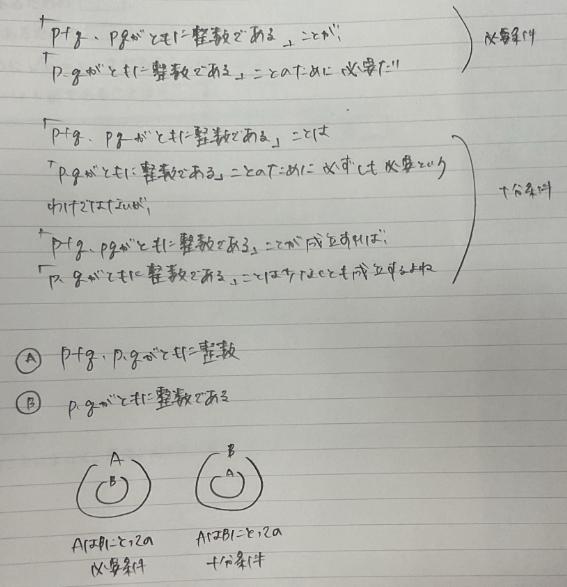 「p+q、pqがともに整数である」ことが、
「p.qがともに整数である」ことのために必要だ!!
必要条件
「p+q、pqがともに整数である」ことは
「p.qがともに整数である」ことのために必ずしも必要という
わけではないが、
「p+q、pqがともに整数である」ことが成立すれば、
「p、qがともに整数である」ことは少なくとも成立するよね
十分条件
Ⓐ p+q、p.qがともに整数
Ⓑ p.qがともに整数である
A
B
B
A
AはBにとっての
必要条件
AはBにとっての
十分条件